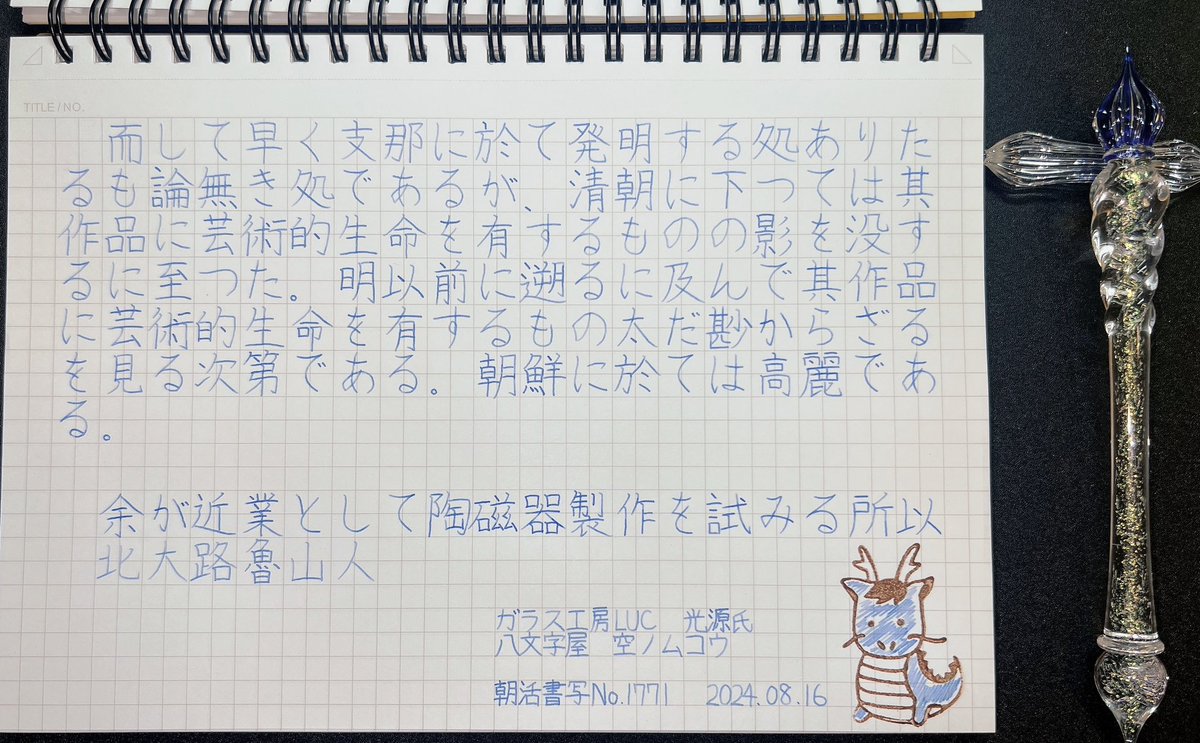 TITLE / NO.
而して早く支那に於て発明する処ありた
るも論無き処であるが、清朝に下つては其
作品に芸術的生命を有するものの影を没す
るに至つた。明以前に遡るに及んで其作品
に芸術的生命を有するもの太だ尠からざる
を見る次第である。朝鮮に於ては高麗であ
る。
余が近業として陶磁器製作を試みる所以
北大路魯山人
ガラス工房LUC 光源氏
八文字屋 空ノムコウ
朝活書写No.1771 2024.08.16